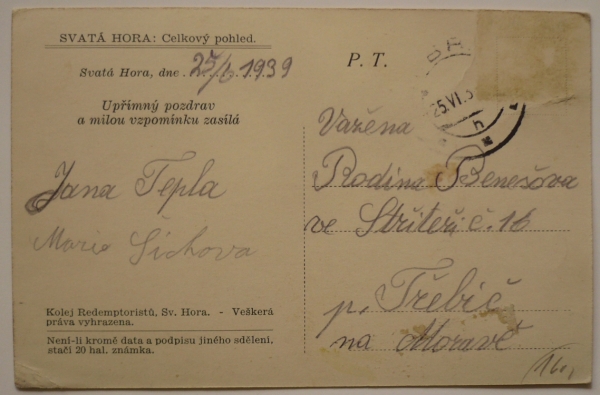 SVATÁ HORA: Celkový pohled.
Svatá Hora, dne 25/6 1939
Upřímný pozdrav
a milou vzpomínku zasílá
Jana Tepla
Marie Šichova
Kolej Redemptoristů, Sv. Hora. - Veškerá
práva vyhrazena.
Není-li kromě data a podpisu jiného sdělení,
stačí 20 hal. známka.
P. T.
25.VI.3
h
Važéna
Rodina Benešova
ve Střiteři č. 16
p. Třebič
na Moravě